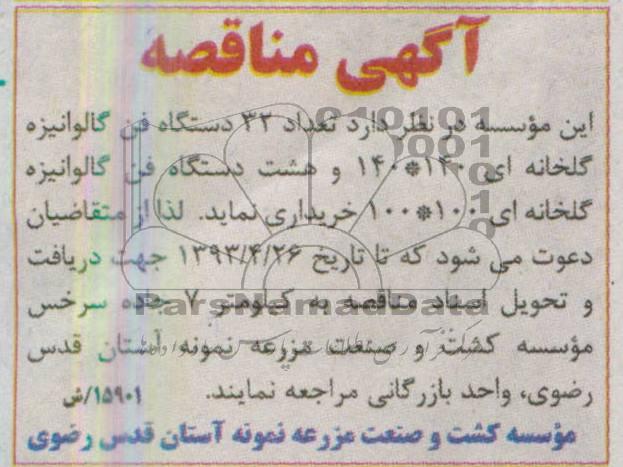 آگهی مناقصه
این مؤسسه در نظر دارد تعداد ۳۲ دستگاه فن گالوانیزه
گلخانه ای ۱۴۰*۱۴۰ و هشت دستگاه فن گالوانیزه
گلخانه ای ۱۰۰*۱۰۰ خریداری نماید. لذا از متقاضیان
دعوت می شود که تا تاریخ ۱۳۹۳/۴/۲۶ جهت دریافت
و تحویل اسناد مناقصه به کیلومتر ۷ جاده سرخس
مؤسسه کشت و صنعت مزرعه نمونه آستان قدس
رضوی، واحد بازرگانی مراجعه نمایند. ۱۵۹۰۱/ش
مؤسسه کشت و صنعت مزرعه نمونه آستان قدس رضوی
ParsNamadData